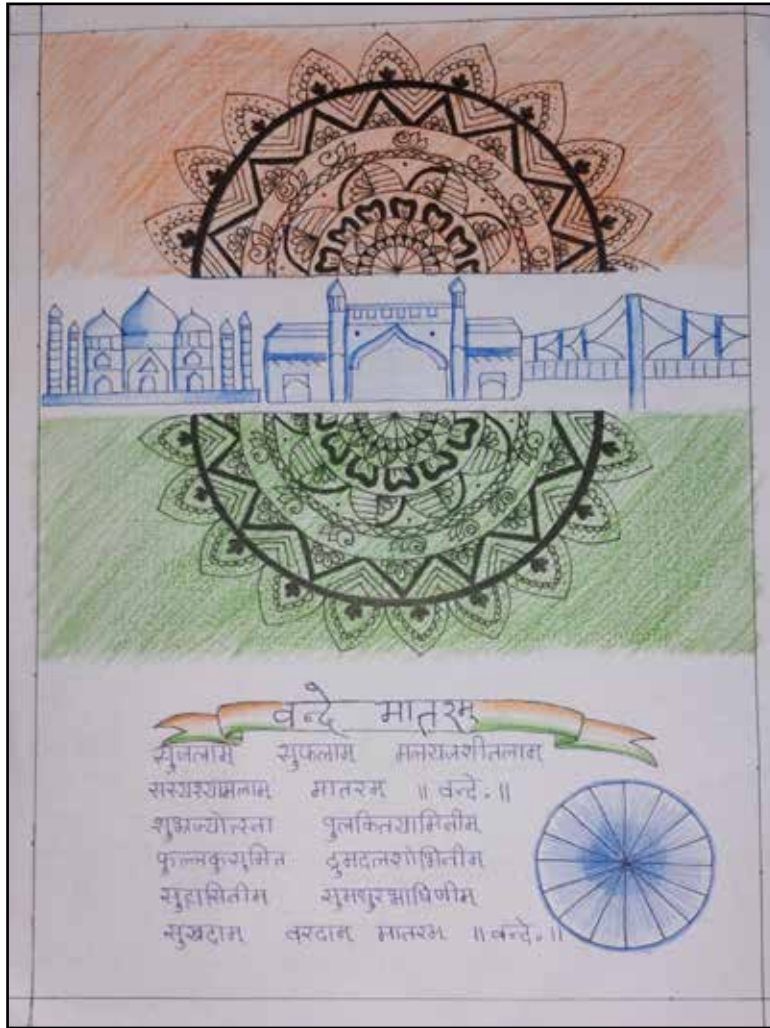 वन्दे मातरम्
सुजलाम् सुफलाम् मलयजशीतलाम्
सस्यश्यामलाम् मातरम् ॥ वन्दे. ॥
शुभ्रज्योत्स्ना पुलकितयामिनीम्
फुल्लकुसुमित द्रुमदलशोभिनीम्
सुहासिनीम् सुमधुरभाषिणीम्
सुखदाम् वरदाम् मातरम् ॥ वन्दे. ॥